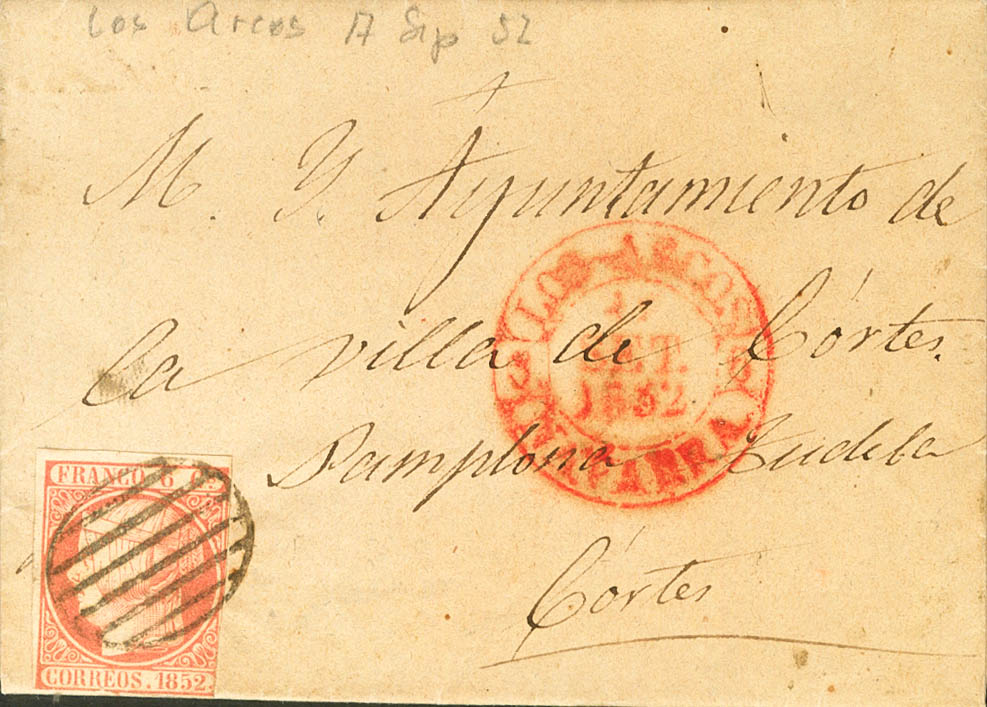 Los Arcos 17 Sep 52
M. Y. Ayuntamiento de
la villa de Córtes.
Pamplona Tudela
Córtes
LOS ARCOS
SET.
1852
NAVARRA
FRANCO 6 C.
CORREOS. 1852.